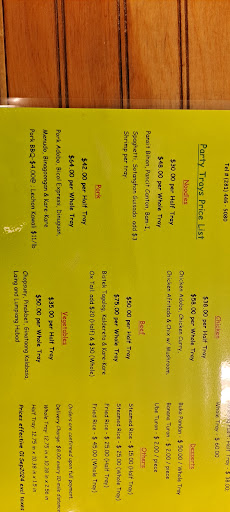 Tel # (281) 446 - 1985
Party Trays Price List
Noodles
$30.00 per Half Tray
$48.00 per Whole Tray
Pancit Bihon, Pancit Canton, Bam-I,
Spaghetti, Sotanghon Guisado, add $3
Shrimp per tray
Pork
$42.00 per Half Tray
$64.00 per Whole Tray
Pork Adobo, Bicol Express, Dinuguan,
Menudo, Binagoongan & Kare Kare
Pork BBQ $4.00@ ; Lechon Kawali $11/lb
Chicken
$38.00 per Half Tray
$58.00 per Whole Tray
Chicken Adobo, Chicken Curry,
Chicken Afritada & Ckn w/ Mushroom
Beef
$50.00 per Half Tray
$75.00 per Whole Tray
Bistek Tagalog, Kaldereta & Kare Kare
Ox Tail add $20 (Half) & $30 (Whole)
Vegetables
$35.00 per Half Tray
$50.00 per Whole Tray
Chopsuey, Pinakbet, Ginataang Kalabasa,
Laing and Lumpiang Hubad
Half Tray $ 38.00
Whole Tray - $ 60.00
Desserts
Buko Pandan - $ 50.00 / Whole Tray
Banana Turon - $ 2.00 / piece
Ube Turon - $ 2.00 / piece
Others
Steamed Rice - $ 15.00 (Half Tray)
Steamed Rice - $ 25.00 (Whole Tray)
Fried Rice - $ 25.00 (Half Tray)
Fried Rice - $ 45.00 (Whole Tray)
Orders are confirmed upon full payment
Delivery Charge: $8.00 every 10-mile distance
Whole Tray: 12.75 in x 10.38 in x 2.56 in
Half Tray: 12.75 in x 10.38 in x 1.5 in
Prices effective 01Sep2024 excl taxes